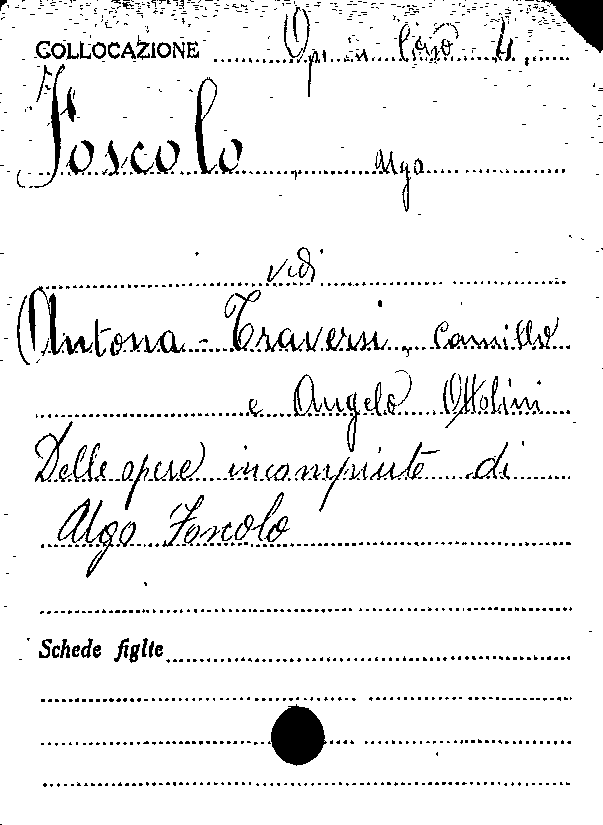 COLLOCAZIONE Op. in Cons 4.
Foscolo, Ugo
vedi
Antona-Traversi, Camillo
e Angelo Ottolini
Delle opere incompiute di
Ugo Foscolo
Schede figlie